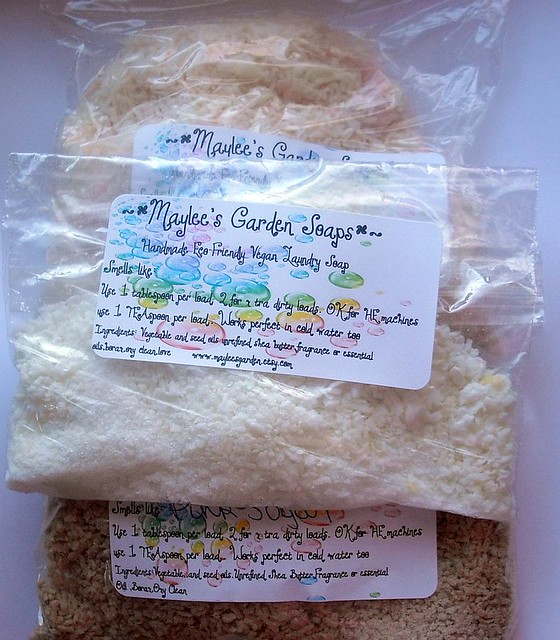 ~*Maylee's Gard
~*Maylee's Garden Soaps*~
Handmade Eco-Friendly Vegan Laundry Soap
Smells like
Use 1 tablespoon per load, 2 for x tra dirty loads. OK for HE machines
use 1 TEASpoon per load. Works perfect in cold water too
Ingredients: Vegetable and seed oils unrefined shea butter,fragrance or essential
oils,borax,oxy clean,love www.mayleesgarden.etsy.com
Smells like Pink Sugar
Use 1 tablespoon per load, 2 for x tra dirty loads. OK for HE machines
use 1 TEASpoon per load. Works perfect in cold water too
Ingredients:Vegetable and seed oils.Unrefined Shea Butter,Fragrance or essential
Oil. Borax,Oxy Clean